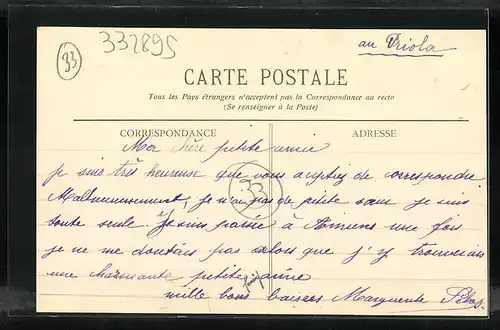 33
332895
au Priola
CARTE POSTALE
Tous les Pays étrangers n'acceptent pas la Correspondance au recto
(Se renseigner à la Poste)
CORRESPONDANCE
ADRESSE
Ma chère petite amie
je suis très heureuse que vous acceptiez de correspondre.
Malheureusement je n'ai pas de petite sœur je suis
toute seule. Je suis passée à Amiens une fois
je ne me doutais pas alors que j'y trouverais
une charmante petite amie
mille bons baisers Marguerite
33